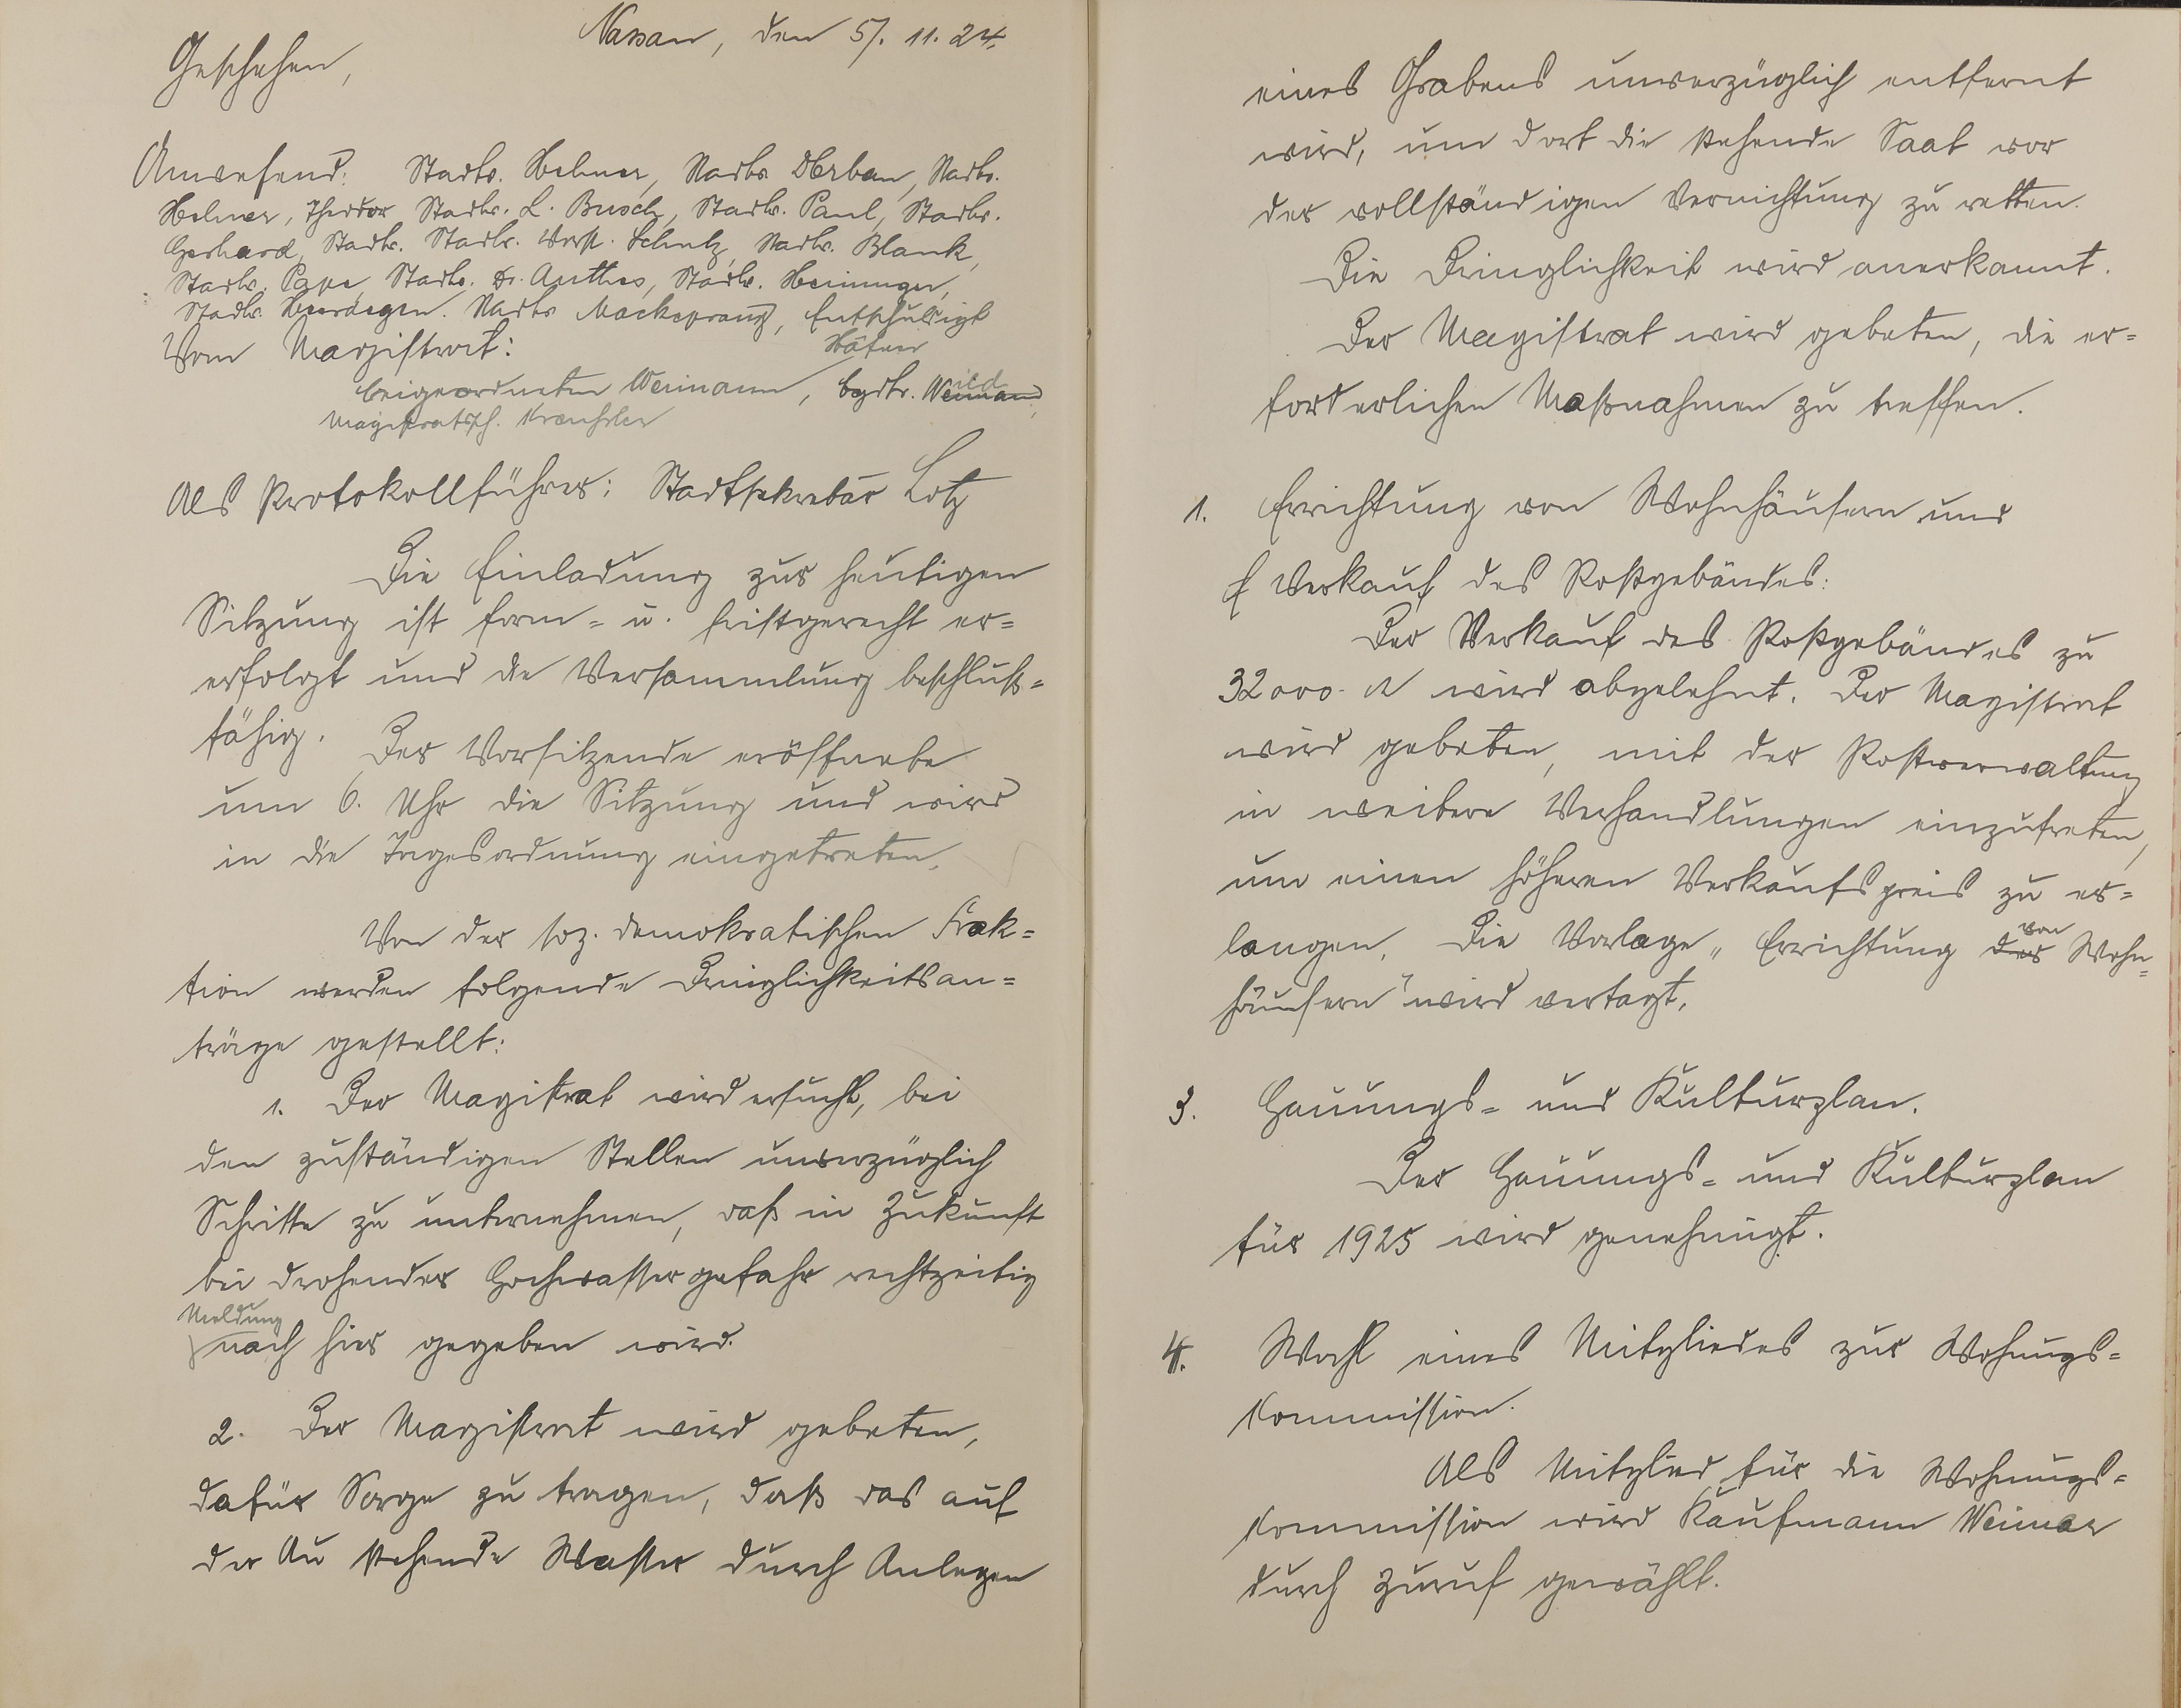 Nassau, den 5/. 11. 24.
Geschehen,
Anwesend: Stadtv. Helmer, Stadtv. Stadtv.
Helmer, Theodor Stadtv. L. Busch, Stadtv. Paul, Stadtv.
Gerhard, Stadtv. Stadtv. Vorst. Schulz, Stadtv. Blank,
Stadtv. Pape, Stadtv. Dr. Anthes, Stadtv.
Stadtv. Stadtv. Mackeprang, Entschuldigt
Vom Magistrat:
beigeordneten Weimann, bgdtr.
Magistratsch.
Als Protokollführer: Stadtsekretär Lotz
Die Einladung zur heutigen
Sitzung ist form- u. fristgerecht er=
erfolgt und die Versammlung beschluß=
fähig. Der Vorsitzende eröffnete
um 6. Uhr die Sitzung und wird
in die Tagesordnung eingetreten.
Von der soz. demokratischen Frak=
tion werden folgende Dringlichkeitsan=
träge gestellt:
1. Der Magistrat wird ersucht, bei
den zuständigen Stellen unverzüglich
Schritte zu unternehmen, daß in Zukunft
bei drohender Hochwassergefahr rechtzeitig
Meldung
nach hier gegeben wird.
2. Der Magistrat wird gebeten,
dafür Sorge zu tragen, daß das auf
der Au stehende Wasser durch Anlegen
eines Grabens unverzüglich entfernt
wird, um dort die stehende Saat vor
der vollständigen Vernichtung zu retten.
Die Dringlichkeit wird anerkannt.
Der Magistrat wird gebeten, die er=
forderlichen Maßnahmen zu treffen.
1. Errichtung von Wohnhäusern und
Verkauf des Postgebäudes:
Der Verkauf des Postgebäudes zu
32000.- M wird abgelehnt. Der Magistrat
wird gebeten, mit der Postverwaltung
in weitere Verhandlungen einzutreten,
um einen höheren Verkaufspreis zu er=
langen. Die Vorlage „Errichtung der von Wohn=
häusern" wird vertagt.
3. Hauungs= und Kulturplan.
Der Hauungs= und Kulturplan
für 1925 wird genehmigt.
4. Wahl eines Mitgliedes zur Wohnungs=
kommission.
Als Mitglied für die Wohnungs=
kommission wird Kaufmann Weimar
durch Zuruf gewählt.